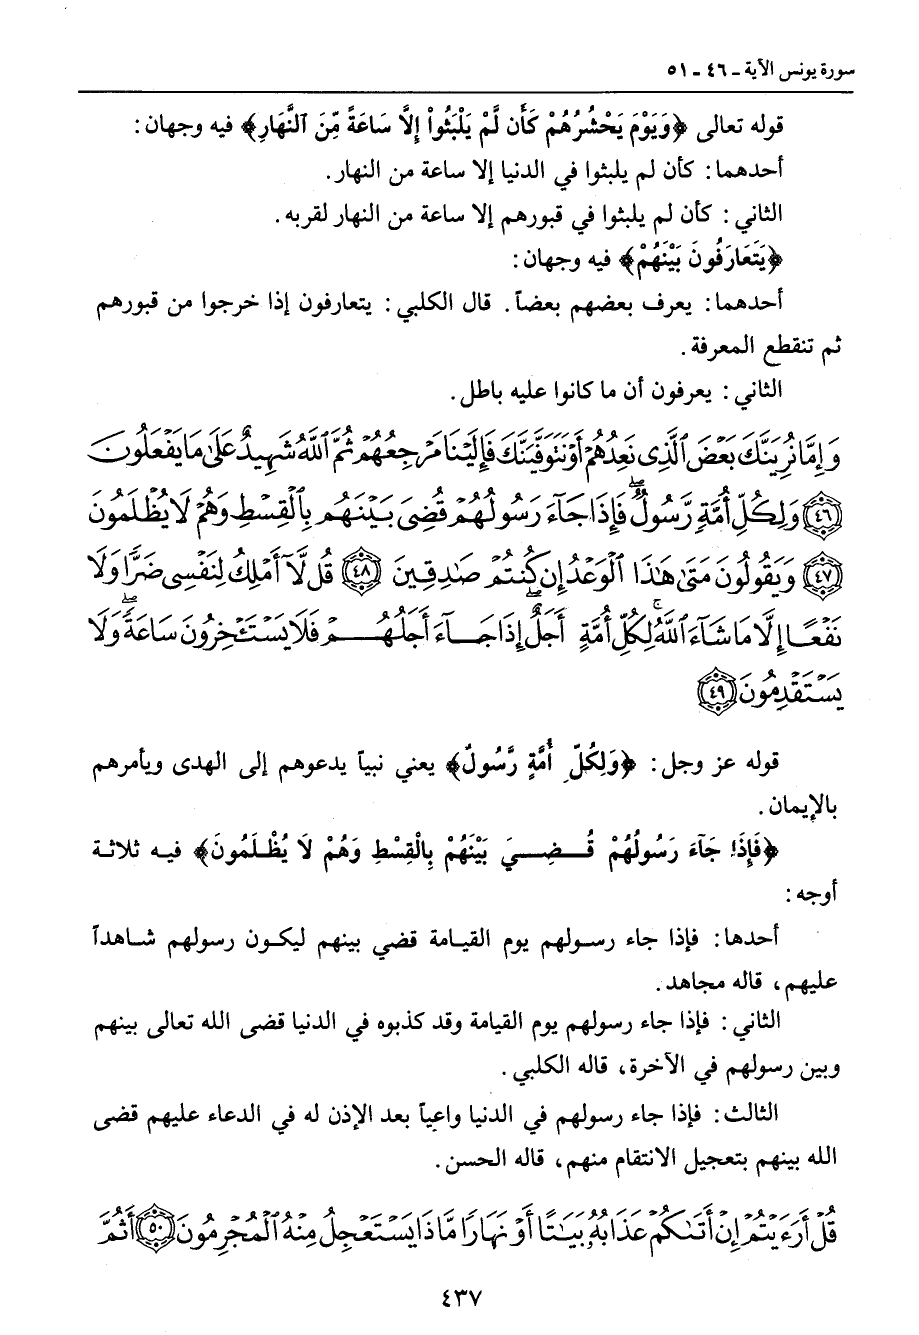 سورة يونس الآية ـ ٤٦ ـ ٥١
قوله تعالى ﴿وَيَوْمَ يَحْشُرُهُمْ كَأَن لَّمْ يَلْبَثُواْ إِلَّا سَاعَةً مِّنَ النَّهَارِ﴾ فيه وجهان:
أحدهما: كأن لم يلبثوا في الدنيا إلا ساعة من النهار.
الثاني: كأن لم يلبثوا في قبورهم إلا ساعة من النهار لقربه.
﴿يَتَعَارَفُونَ بَيْنَهُمْ﴾ فيه وجهان:
أحدهما: يعرف بعضهم بعضاً. قال الكلبي: يتعارفون إذا خرجوا من قبورهم
ثم تنقطع المعرفة.
الثاني: يعرفون أن ما كانوا عليه باطل.
وَإِمَّا نُرِيَنَّكَ بَعْضَ ٱلَّذِى نَعِدُهُمْ أَوْ نَتَوَفَّيَنَّكَ فَإِلَيْنَا مَرْجِعُهُمْ ثُمَّ ٱللَّهُ شَهِيدٌ عَلَىٰ مَا يَفْعَلُونَ
﴿٤٦﴾ وَلِكُلِّ أُمَّةٍ رَّسُولٌ ۖ فَإِذَا جَآءَ رَسُولُهُمْ قُضِىَ بَيْنَهُم بِٱلْقِسْطِ وَهُمْ لَا يُظْلَمُونَ
﴿٤٧﴾ وَيَقُولُونَ مَتَىٰ هَٰذَا ٱلْوَعْدُ إِن كُنتُمْ صَٰدِقِينَ ﴿٤٨﴾ قُل لَّآ أَمْلِكُ لِنَفْسِى ضَرًّا وَلَا
نَفْعًا إِلَّا مَا شَآءَ ٱللَّهُ ۗ لِكُلِّ أُمَّةٍ أَجَلٌ ۚ إِذَا جَآءَ أَجَلُهُمْ فَلَا يَسْتَـْٔخِرُونَ سَاعَةً ۖ وَلَا
يَسْتَقْدِمُونَ ﴿٤٩﴾
قوله عز وجل: ﴿وَلِكُلِّ أُمَّةٍ رَّسُولٌ﴾ يعني نبياً يدعوهم إلى الهدى ويأمرهم
بالإيمان.
﴿فَإِذَا جَآءَ رَسُولُهُمْ قُضِيَ بَيْنَهُمْ بِالْقِسْطِ وَهُمْ لَا يُظْلَمُونَ﴾ فيه ثلاثة
أوجه:
أحدها: فإذا جاء رسولهم يوم القيامة قضي بينهم ليكون رسولهم شاهداً
عليهم، قاله مجاهد.
الثاني: فإذا جاء رسولهم يوم القيامة وقد كذبوه في الدنيا قضى الله تعالى بينهم
وبين رسولهم في الآخرة، قاله الكلبي.
الثالث: فإذا جاء رسولهم في الدنيا واعياً بعد الإذن له في الدعاء عليهم قضى
الله بينهم بتعجيل الانتقام منهم، قاله الحسن.
قُلْ أَرَءَيْتُمْ إِنْ أَتَىٰكُمْ عَذَابُهُۥ بَيَٰتًا أَوْ نَهَارًا مَّاذَا يَسْتَعْجِلُ مِنْهُ ٱلْمُجْرِمُونَ ﴿٥٠﴾ أَثُمَّ
٤٣٧